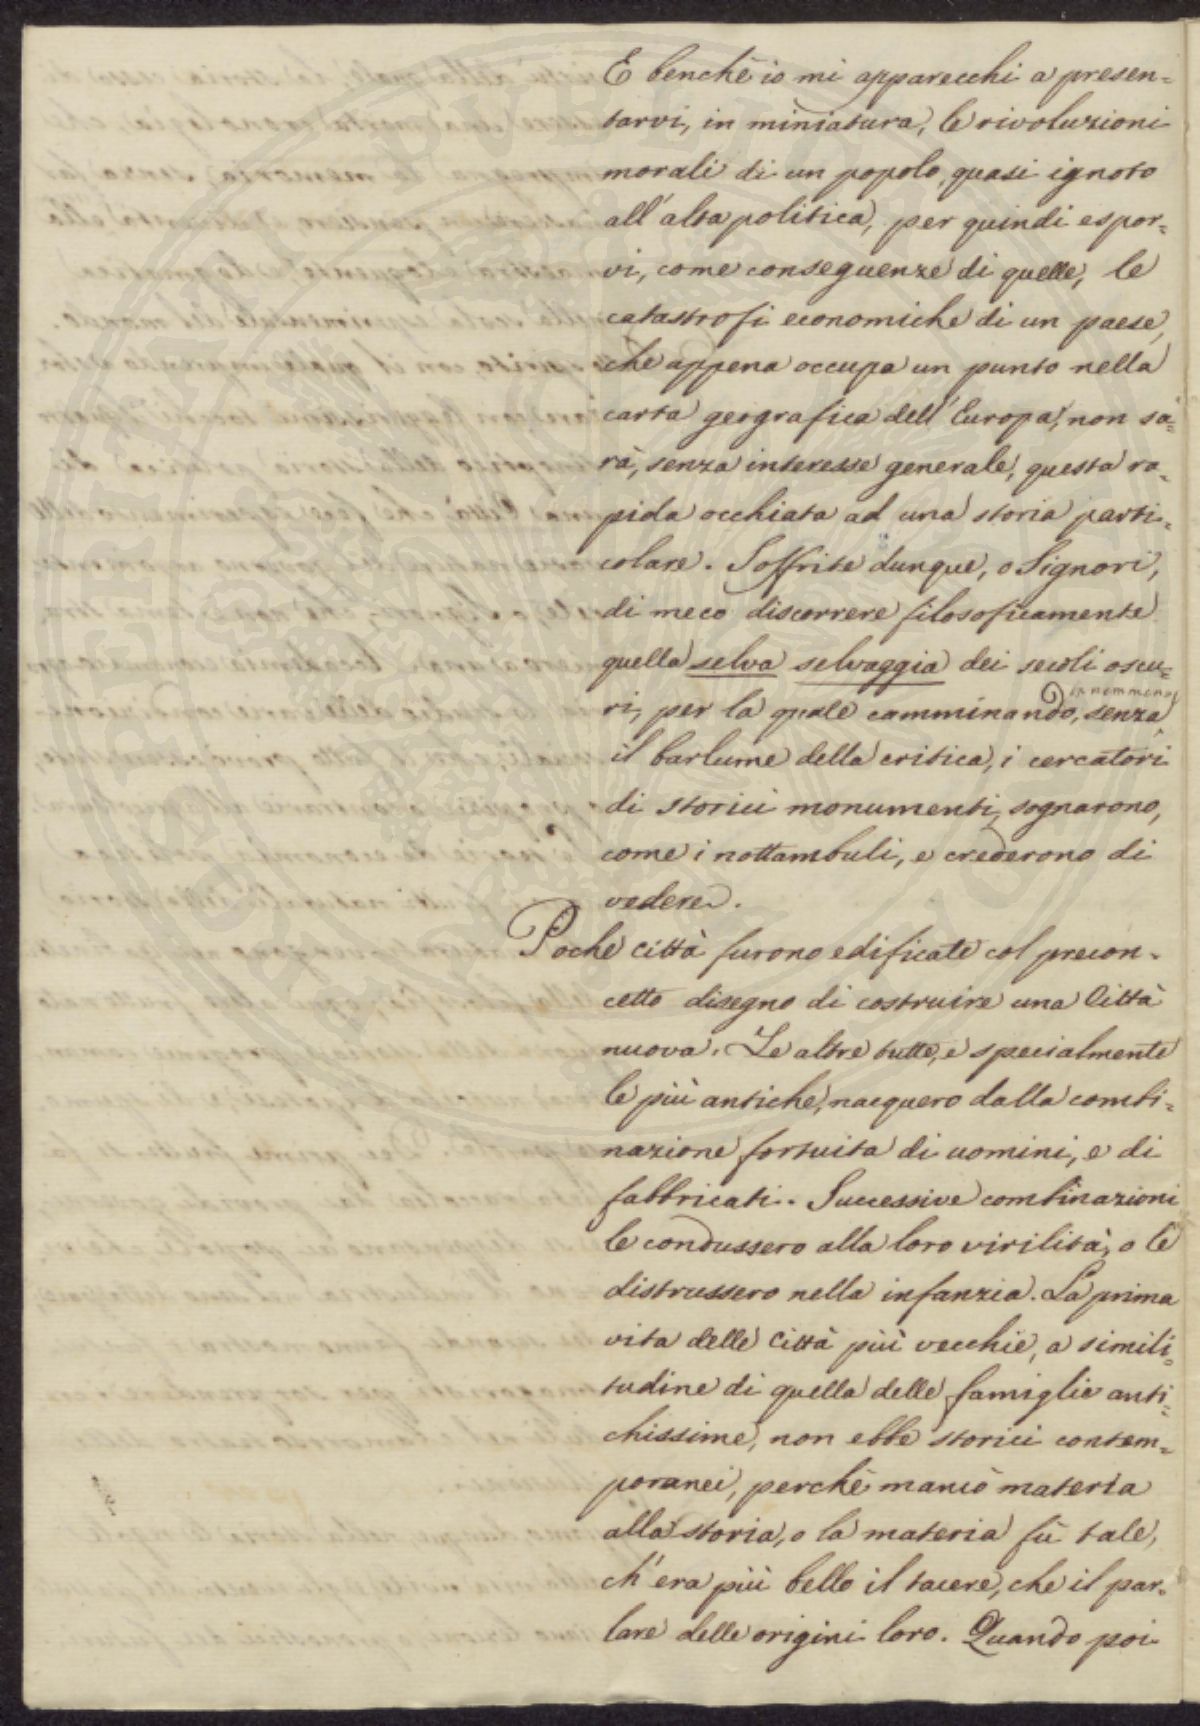 E benchè io mi apparecchi a presen=
tarvi, in miniatura, le rivoluzioni
morali di un popolo, quasi ignoto
all'alta politica, per quindi espor=
vi, come conseguenze di quelle, le
catastrofi economiche di un paese,
che appena occupa un punto nella
carta geografica dell'Europa, non sa=
rà, senza interesse generale, questa ra=
pida occhiata ad una storia parti=
colare. Soffrite dunque, o Signori,
di meco discorrere filosoficamente
quella selva selvaggia dei secoli oscu=
ri, per la quale camminando, senza
il barlume della critica, i cercatori
di storici monumenti, sognarono,
come i nottambuli, e crederono di
vedere.
Poche città furono edificate col precon=
cetto disegno di costruire una Città
nuova. Le altre tutte, e specialmente
le più antiche, nacquero dalla combi=
nazione fortuita di uomini, e di
fabbricati. Successive combinazioni
le condussero alla loro virilità, o le
distrussero nella infanzia. La prima
vita delle Città più vecchie, a simili=
tudine di quella delle famiglie anti=
chissime, non ebbe storici contem=
poranei, perchè mancò materia
alla storia, o la materia fù tale,
ch'era più bello il tacere, che il par=
lare delle origini loro. Quando poi